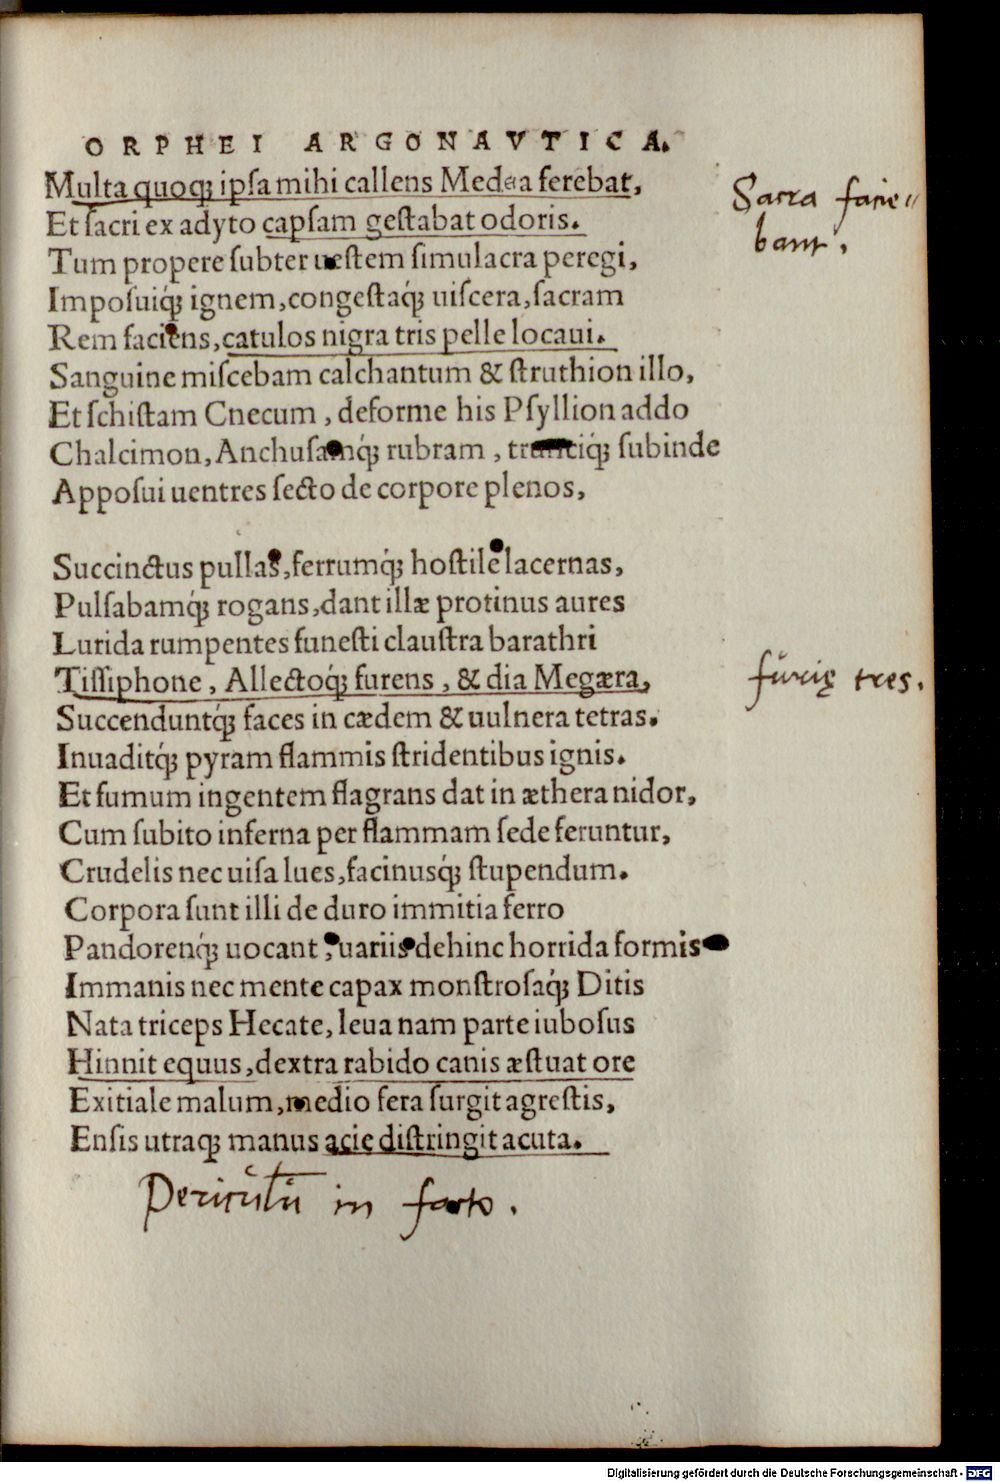 ORPHEI ARGONAVTICA.
Multa quoqꝫ ipsa mihi callens Medea ferebat,
Et sacri ex adyto capsam gestabat odoris.
Tum propere subter uestem simulacra peregi,
Imposuiqꝫ́ ignem, congestaqꝫ́ uiscera, sacram
Rem faciens, catulos nigra tris pelle locaui.
Sanguine miscebam calchantum & struthion illo,
Et schistam Cnecum, deforme his Psyllion addo
Chalcimon, Anchusamqꝫ́ rubram, truntiqꝫ́ subinde
Apposui uentres secto de corpore plenos,
Succinctus pullas, ferrumqꝫ́ hostile lacernas,
Pulsabamqꝫ́ rogans, dant illæ protinus aures
Lurida rumpentes funesti claustra barathri
Tissiphone, Allectoqꝫ́ furens, & dia Megæra,
Succenduntqꝫ́ faces in cædem & uulnera tetras.
Inuaditqꝫ́ pyram flammis stridentibus ignis.
Et fumum ingentem flagrans dat in æthera nidor,
Cum subito inferna per flammam sede feruntur,
Crudelis nec uisa lues, facinusqꝫ́ stupendum.
Corpora sunt illi de duro immitia ferro
Pandorenqꝫ́ uocant, uariis dehinc horrida formis
Immanis nec mente capax monstrosaqꝫ́ Ditis
Nata triceps Hecate, leua nam parte iubosus
Hinnit equus, dextra rabido canis æstuat ore
Exitiale malum, medio fera surgit agrestis,
Ensis utraqꝫ manus acie distringit acuta.
Sacra facie⸗
bant.
furię tres.
Periculū in
Digitalisierung gefördert durch die Deutsche Forschungsgemeinschaft - DFG